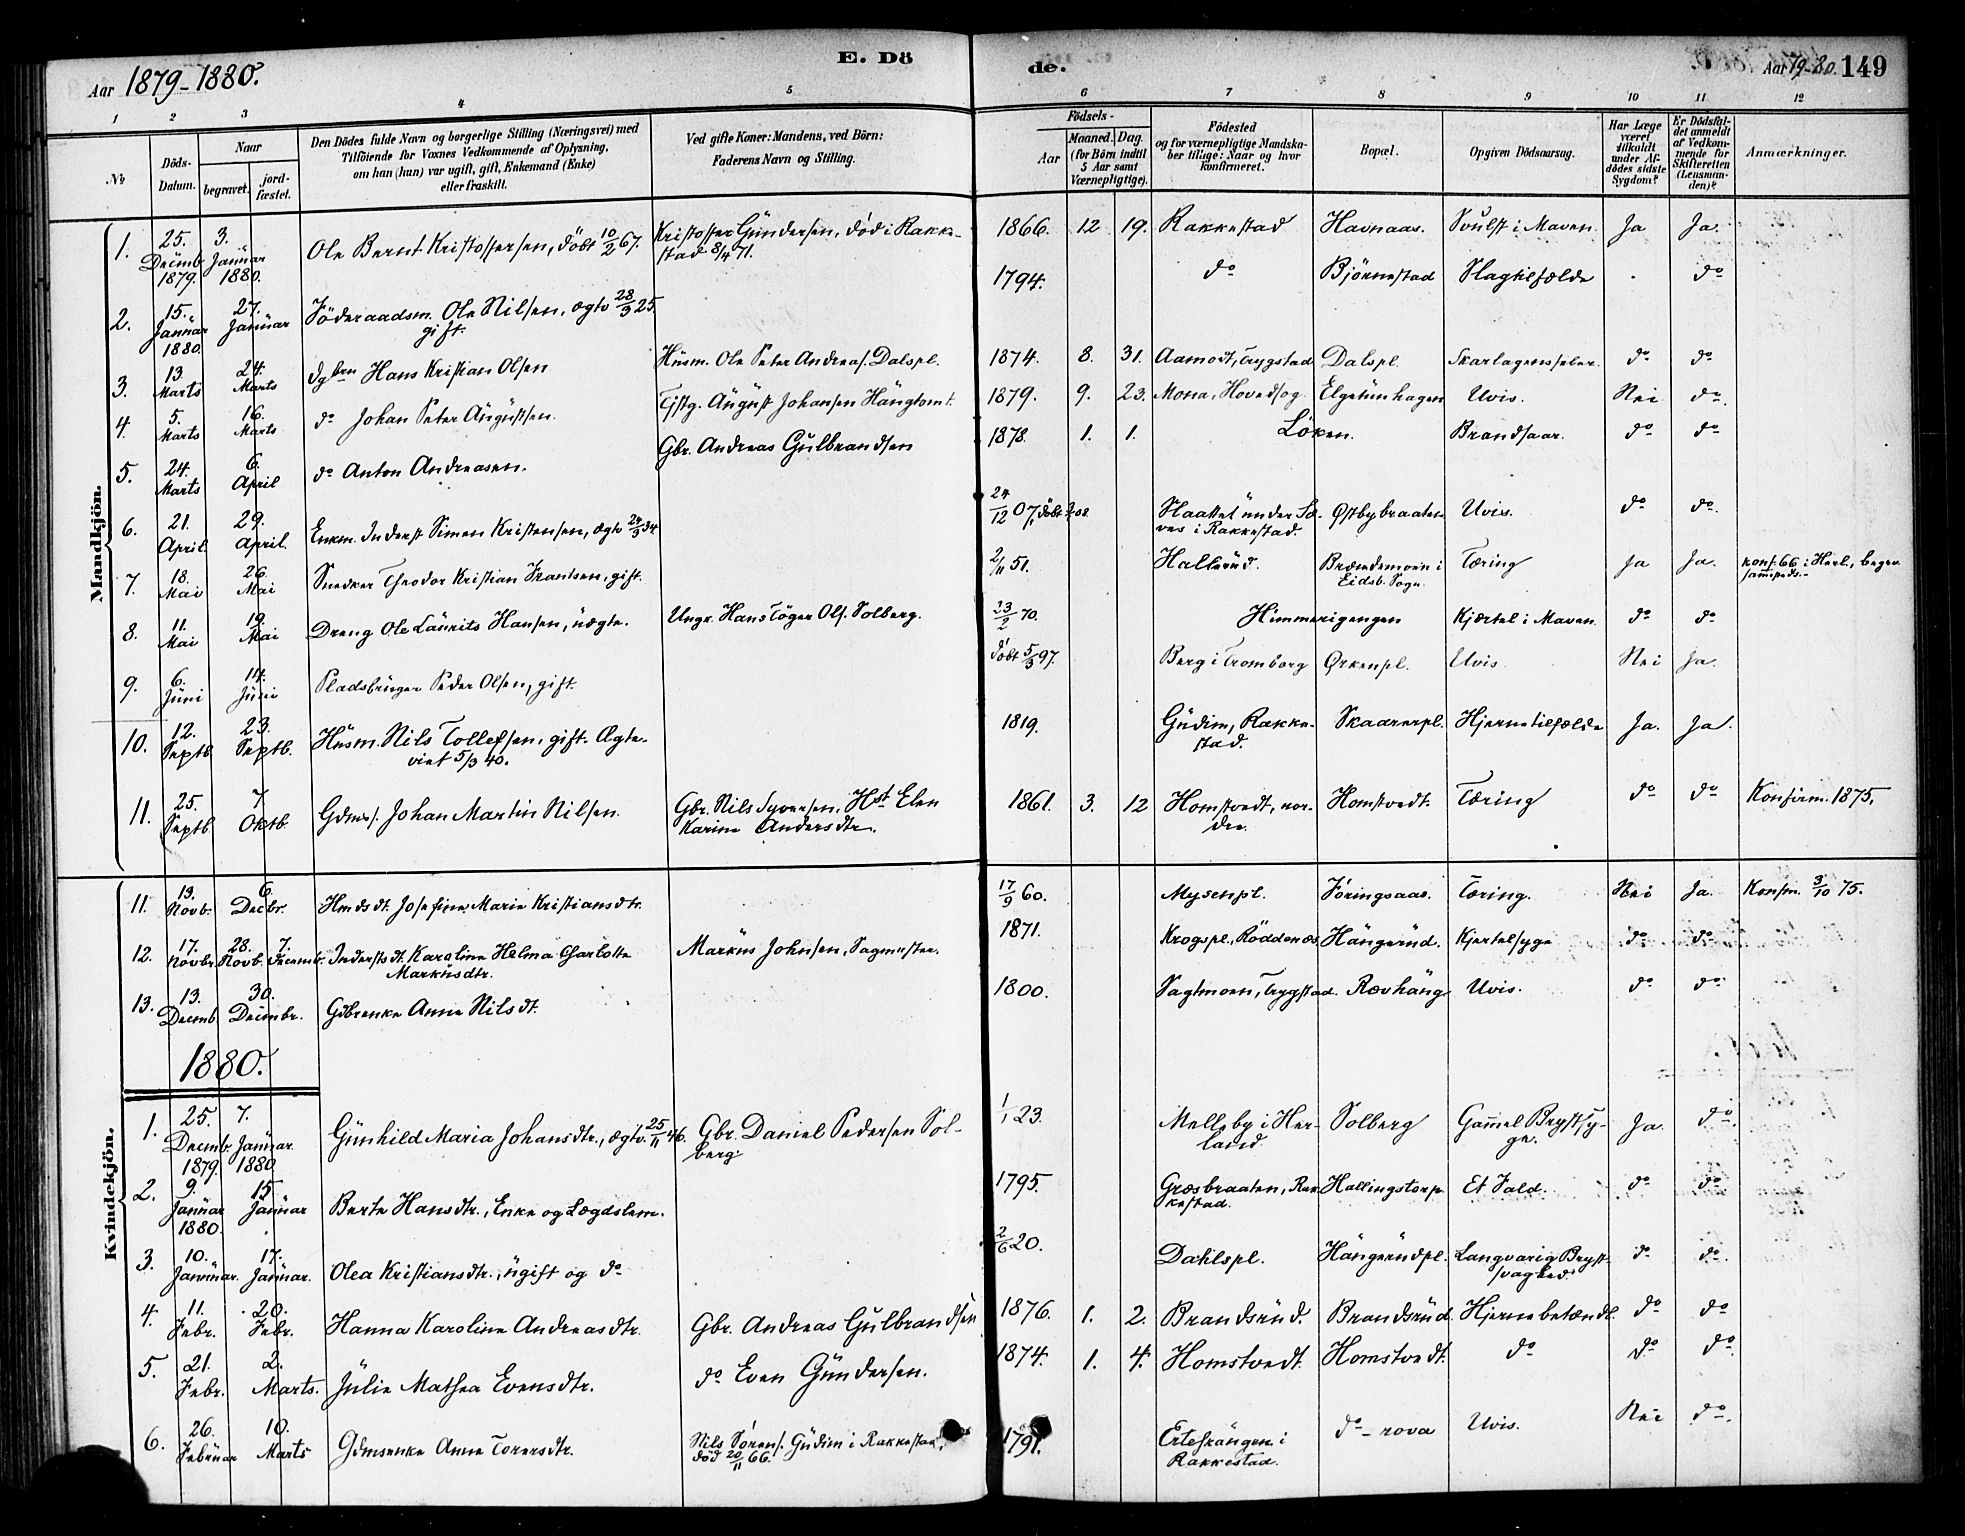 E. Dö de.
Aar 1879-1880. Aar 79-80. 149
1 2 3 4 5 6 7 8 9 10 11 12
No
Döds-Datum.
Naar begravet. jordfæstet.
Den Dödes fulde Navn og borgerlige Stilling (Næringsvei) med
Tilföiende for Voxnes Vedkommende af Oplysning,
om han (hun) var ugift, gift, Enkemand (Enke)
eller fraskilt.
Ved gifte Koner: Mandens, ved Börn:
Faderens Navn og Stilling.
Födsels-
Aar Maaned. Dag.
(for Börn indtil
5 Aar samt
Værnepligtige).
Födested
og for værnepligtige Mandska-
ber tillige: Naar og hvor
konfirmeret.
Bopæl.
Opgiven Dödsaarsag.
Har Læge
været
tilkaldt
under Af-
dödes sidste
Sygdom?
Er Dödsfal-
det anmeldt
af Vedkom-
mende for
Skifteretten
(Lensman-
den)?
Anmærkninger.
Mandkjön.
1. 25. Decemb. 1879. 3. Januar 1880. Ole Bernt Kristoffersen, döbt 10/2 67. Kristoffer Gundersen, död i Rakkestad 8/4 71. 1866. 12 19. Rakkestad Havnaas. Svulst i Maven. Ja Ja.
2. 15. Januar 1880. 27. Januar Föderaadsm. Ole Nilsen, ægtv 28/3 25. gift. 1794. do Björnestad Slagtilfælde . do
3. 13 Marts 24. Marts dgbrn Hans Kristian Olsen Husm. Ole Peter Andreas. Dalspl. 1874. 8. 31. Aamodt, Trygstad Dalspl. Skarlagensfeber. do do
4. 5. Marts 16. Marts do Johan Peter Augustsen. Tjstg. August Johansen Hangtomt. 1879. 9. 23. Mona, Hovedsog. Elgetunhagen Uvis. Nei do
5. 24. Marts 6. April do Anton Andreasen. Gbr. Andreas Gulbrandsen 1878. 1. 1. Löken. Brandsaar. do do
6. 21. April. 29. April. Enkm. Inderst Simen Kristensen, ægtv 24/3 34. 24/12 07, döbt 08 Slaattet under Sæves i Rakkestad. Østbybraaten Uvis. do do.
7. 18. Mai 26. Mai Snedker Theodor Kristian Frantsen, gift. 2/11 51. Hallerud. Brændemoen i Eidsb. Sogn. Tæring Ja Ja. konf. 66 i Herl., begrv. sammesteds.
8. 11. Mai 19. Mai Dreng Ole Laurits Hansen, uægte. Ungk. Hans Töger Ols. Solberg. 23/2 70. Himmerigengen Kjærtel i Maven. do do
9. 6. Juni 14. Juni Pladsbruger Peder Olsen, gift. döbt 5/3 97. Berg i Tromborg Ørkenpl. Uvis. Nei Ja.
10. 12. Septb. 23. Septb. Husm. Nils Tollefsen, gift. Ægteviet 5/3 40. 1819. Gudim, Rakkestad. Skaarerpl. Hjernetilfælde Ja. Ja.
11. 25. Septb. 7 Oktb. Gdms. Johan Martin Nilsen. Gbr. Nils Syversen, Hst Elen Karine Andersdtr. 1861. 3. 12 Homstvedt, nordre. Homstvedt. Tæring do do Konfirm. 1875.
11. 19. Novbr. 6. Decbr. Hmdsdt. Josefine Marie Kristiansdtr. 17/9 60. Mysenpl. Föringsaas. Tæring. Nei Ja. Konfm. 3/10 75.
12. 17. Novbr. 28. Novb. 7. Decemb. Inderstsdt. Karoline Helma Charlotte Markusdtr. Markus Johnsen, Sagmester. 1871. Krogspl., Röddenæs Hangerud. Kjertelsyge do do
13. 13. Decemb. 30. Decembr. Gdbrenke Anne Nilsdt. 1800. Sagtmoen, Trygstad. Rævhaug Uvis. do do
1880.
Kvindekjön.
1. 25. Decemb. 1879. 7. Januar. 1880 Gunhild Maria Johansdtr., ægtv. 25/11 46. Gbr. Daniel Pedersen Solberg. 1/1 23. Melleby i Herland. Solberg Gammel Brystsyge. Ja. do
2. 9. Januar 1880. 15 Januar Berte Hansdtr., Enke og Lægdslem. 1795. Græsbraaten, Rakkestad. Hallingstorp. Et Fald. do do
3. 10. Januar. 17. Januar. Olea Kristiansdtr., ugift og do 2/6 20. Dahlspl. Hangerudpl. Langvarig Brystsvaghed. do do
4. 11. Febr. 20. Febr. Hanna Karoline Andreasdtr. Gbr. Andreas Gulbrandsen 1876. 1. 2. Brandsrud. Brandsrud Hjernebetændl. do do
5. 21. Febr. 2. Marts. Julie Mathea Evensdtr. do Even Gundersen. 1874. 1. 4. Homstvedt. Homstvedt. do do do
6. 26. Februar 10. Marts Gdmsenke Anne Torersdtr. Nils Sörens. Gudim i Rakkestad, död 20/11 66. 1791. Ertesrangen i Rakkestad. do-rova Uvis. Nei do